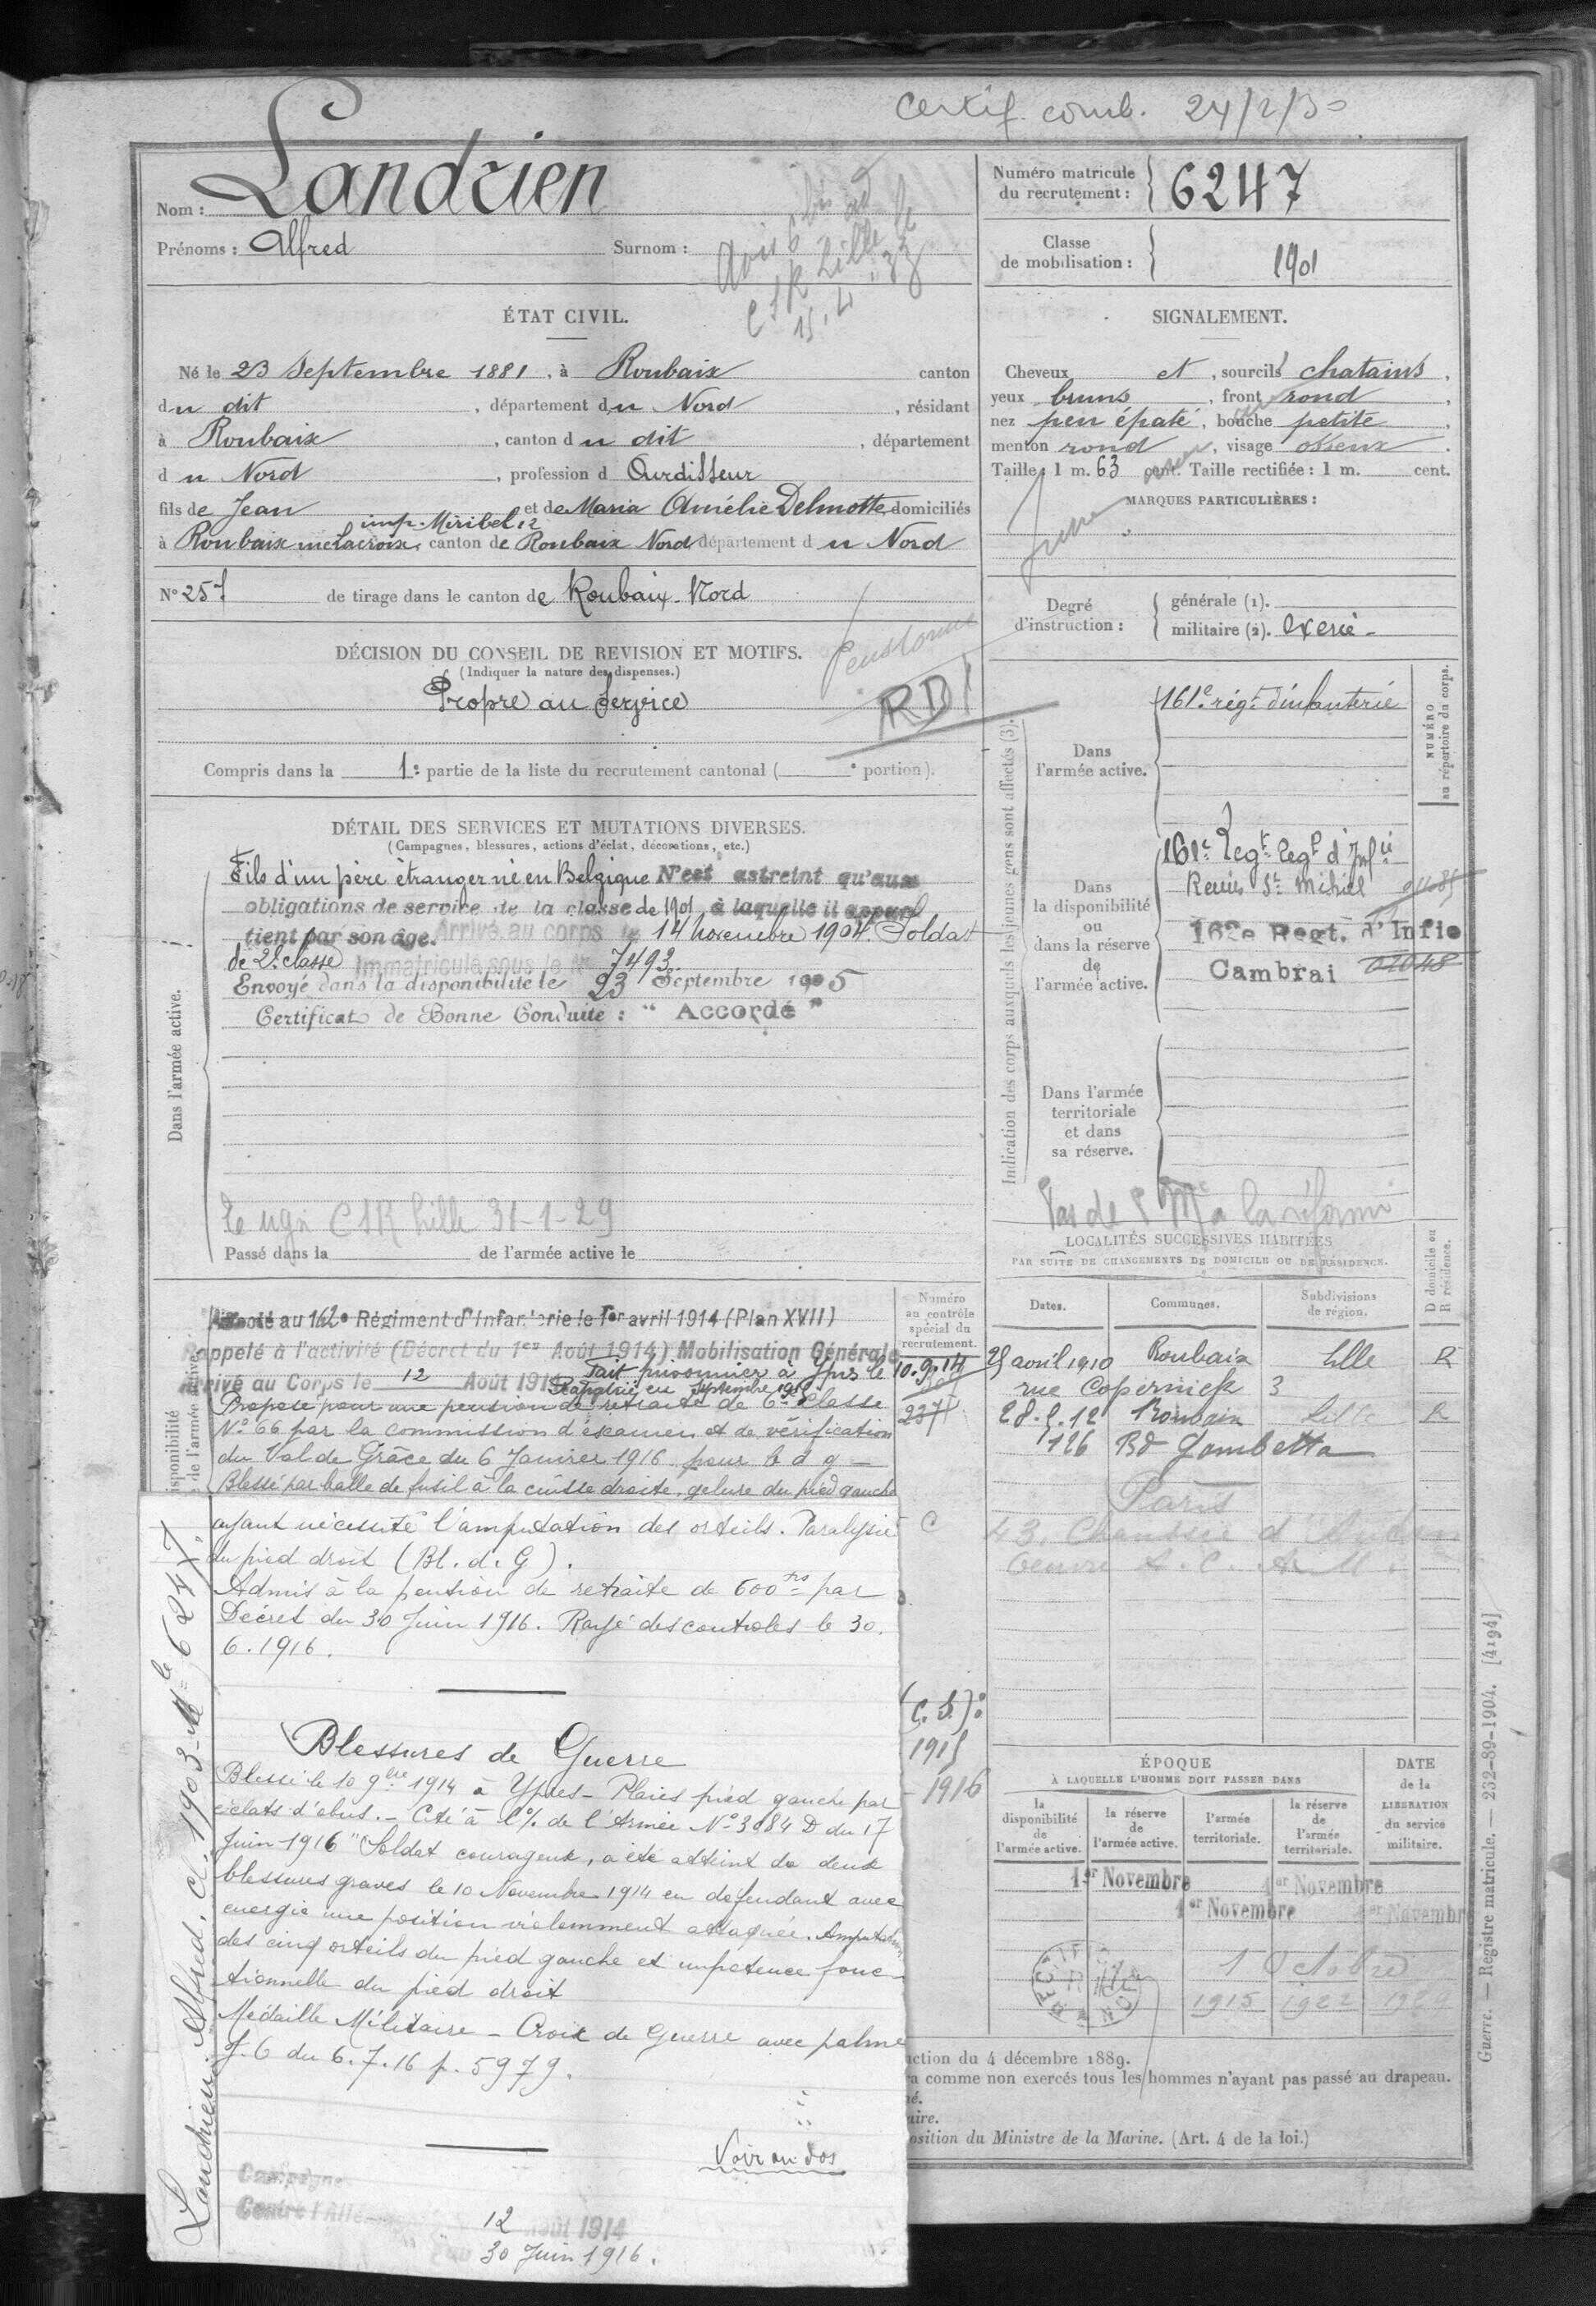 Certif. comb. 24/2/30
Nom : Landrien
Prénoms : Alfred Surnom :
Avis 6 bis ad
C S R Lille le
15.4.33
Numéro matricule
du recrutement : 6247
Classe
de mobilisation : 1901
ÉTAT CIVIL.
Né le 23 Septembre 1881, à Roubaix canton
du dit, département du Nord, résidant
à Roubaix, canton du dit, département
du Nord, profession d Ourdisseur
fils de Jean et de Maria Amélie Delmotte domiciliés
imp. Miribel 12
à Roubaix rue Lacroix, canton de Roubaix Nord département du Nord
SIGNALEMENT.
Cheveux et, sourcils chatains,
yeux bruns, front rond,
nez peu épaté, bouche petite,
menton rond, visage osseux.
Taille : 1 m. 63 cent. Taille rectifiée : 1 m. cent.
MARQUES PARTICULIÈRES :
N° 257 de tirage dans le canton de Roubaix-Nord
Degré
d'instruction :
générale (1).
militaire (2). Exercé -
DÉCISION DU CONSEIL DE REVISION ET MOTIFS.
(Indiquer la nature des dispenses.)
Propre au Service
Pensionné
RD
Compris dans la 1e partie de la liste du recrutement cantonal ( e portion).
DÉTAIL DES SERVICES ET MUTATIONS DIVERSES.
(Campagnes, blessures, actions d'éclat, décorations, etc.)
Dans l'armée active.
Fils d'un père étranger né en Belgique N'est astreint qu'aux
obligations de service de la classe de 1901 à laquelle il appar
tient par son âge. Arrivé au corps le 14 novembre 1904. Soldat
de 2e classe Immatriculé sous le N° 7493
Envoyé dans la disponibilité le 23 Septembre 1905
Certificat de Bonne Conduite : " Accordé "
CSR Lille 31-1-29
Passé dans la de l'armée active le
Indication des corps auxquels les jeunes gens sont affectés (3).
NUMÉRO
au répertoire du corps.
Dans
l'armée active.
161e rég.t d'infanterie
Dans
la disponibilité
ou
dans la réserve
de
l'armée active.
161e Regt d'Infie
Reuis St Mihiel
162e Regt. d'Infie
Cambrai 02048
Dans l'armée
territoriale
et dans
sa réserve.
Pas de S M a la réforme
LOCALITÉS SUCCESSIVES HABITÉES
PAR SUITE DE CHANGEMENTS DE DOMICILE OU DE RÉSIDENCE.
Dates. Communes. Subdivisions
de région.
D domicile ou
R résidence.
25 avril 1910 Roubaix Lille R
rue Copernick 3
28.2.12 Roubaix Lille R
126 Bd Gambetta
Paris
43, Chaussée d'Antin
Numéro
au contrôle
spécial du
recrutement.
237
Affecté au 162e Régiment d'Infanterie le 1er avril 1914 (Plan XVII)
Rappelé à l'activité (Décret du 1er Août 1914) Mobilisation Générale
Arrivé au Corps le 12 Août 1914 Fait prisonnier à Ypres le 10.9.14
Rapatrié en Septembre 1915
Proposé pour une pension de retraite de 6e Classe
N° 66 par la commission d'examen et de vérification
du Val de Grâce du 6 Janvier 1916 pour b d g -
Blessé par balle de fusil à la cuisse droite, gelure du pied gauche
ayant nécessité l'amputation des orteils. Paralysie
du pied droit (Bl. de G).
Admis à la pension de retraite de 600 frs par
Décret du 30 Juin 1916. Rayé des controles le 30.
6.1916.
Blessures de Guerre
Blessé le 10 9bre 1914 à Ypres - Plaies pied gauche par
éclats d'obus. - Cité à l'O/. de l'Armée N° 3084 D du 17
Juin 1916 "Soldat courageux, a été atteint de deux
blessures graves le 10 Novembre 1914 en défendant avec
energie une position violemment attaquée. Amputation
des cinq orteils du pied gauche et impotence fonc-
tionnelle du pied droit
Médaille Militaire - Croix de Guerre avec palme
J.O du 6.7.16 p. 5979.
Voir au dos
Campagne
Contre l'Allemagne
12 Août 1914
30 Juin 1916.
Landrien Alfred. Cl. 1903 - Mle 6247.
(C. S.) :
1915
1916
ÉPOQUE
À LAQUELLE L'HOMME DOIT PASSER DANS
DATE
de la
LIBÉRATION
du service
militaire.
la
disponibilité
de
l'armée active.
la réserve
de
l'armée active.
l'armée
territoriale.
la réserve
de
l'armée
territoriale.
1er Novembre 1er Novembre
1er Novembre 1er Novembre
1 Octobre
1915 1922 1929
uction du 4 décembre 1889.
ra comme non exercés tous les hommes n'ayant pas passé au drapeau.
né.
aire.
osition du Ministre de la Marine. (Art. 4 de la loi.)
Guerre. — Registre matricule. — 232-89-1904. [4194]